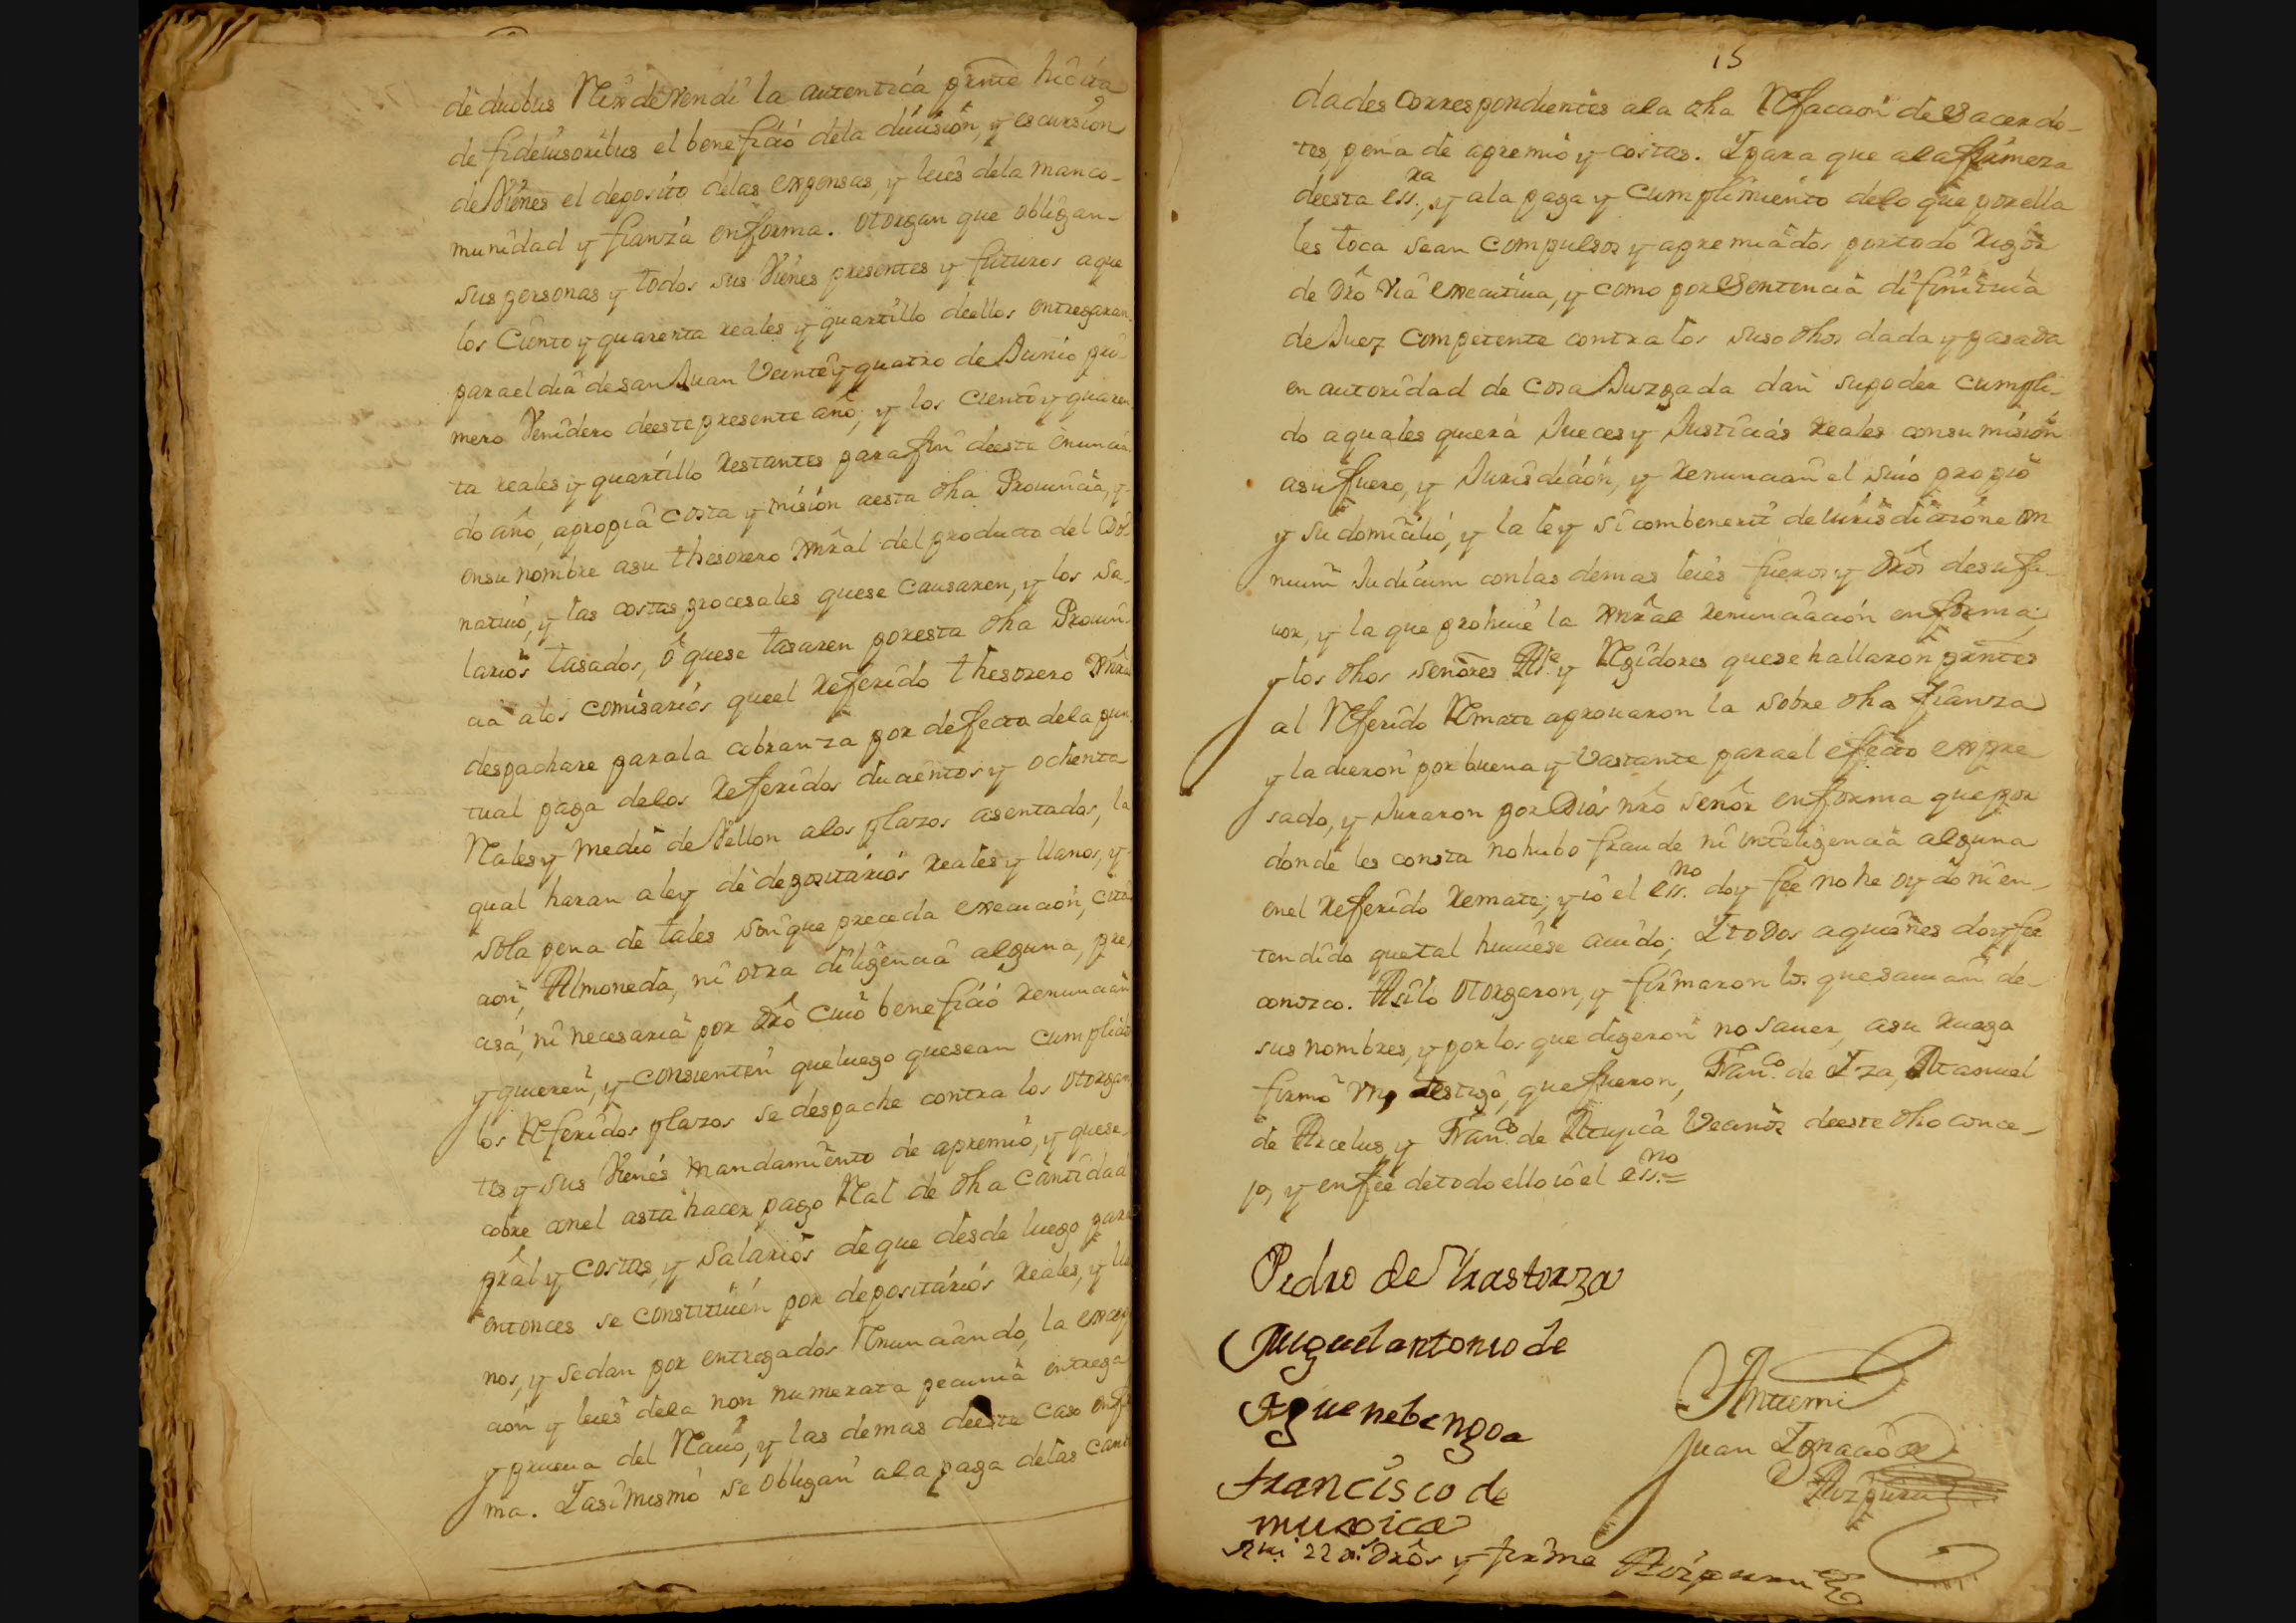 de duobus Rex devendi la autentica pres̃ente hocita
de fideiusoribus el beneficio dela diuision, y escursion
de Vienes el deposito delas expensas, y leies dela manco-
munidad y fianza en forma. otorgan que obligan
sus personas y todos sus Vienes presentes y futuros a que
los Ciento y quarenta reales y quartillo deellos entregaran
para el dia de san Juan Veinte y quatro de Junio pri-
mero Venidero deeste presente año; y los ciento y quaren
ta reales y quartillo restantes para fin deeste enuncia
do año, apropia costa y mision aesta dha Prouincia, y
ensu nombre asu thesorero gñral del producto del Do-
natiuo, y las costas procesales quese causaren, y los sa-
larios tasados, ò quese tasaren poresta dha Prouin-
cia alos comisarios queel referido thesorero gñral
despachare parala cobranza por defecto dela pun
tual paga delos referidos ducientos y ochenta
Rales y medio de Vellon alos plazos asentados, la
qual haran a ley de depositarios reales y llanos, y
sola pena de tales sin que preceda execucion, cita
cion, Almoneda, ni otra diligencia alguna, pre
cisa, ni necesaria por dr̃o cuio beneficio renuncian
y quieren, y consienten queluego quesean cumplidos
los Referidos plazos se despache contra los otorgan
tes y sus Vienes mandamiento de apremio, y quese
cobre conel asta hacer pago Ral de dha cantidad
pr̃al y costas, y salarios deque desde luego para
entonces se constituien por depositarios reales, y lla
nos, y sedan por entregados Renunciando, la excep
cion y leies dela non numerata pecunia entrega
y prueua del Reciuo, y las demas deeste caso en for
ma. Iasimismo se obligan ala paga delas canti
15
dades correspondientes ala dha Refaccion de Sacerdo-
tes, pena de apremio y costas. Ipara que ala firmeza
deesta ess.ra, y ala paga y cumplimiento delo que porella
les toca sean compulsos y apremiados portodo rigor
de dr̃o via executiua, y como por Sentencia difinitiua
de Juez competente contra los suso dhos dada y pasada
en autoridad de cosa Juzgada dan supoder cumpli-
do a quales quiera Jueces y Justicias reales consumision
asu fuero, y Jurisdicion, y renuncian el suio propio
y su domicilio, y la ley si combenerit de iurisdictione om
nium Judicum conlas demas leies fueros y dr̃os desu fa-
uor, y la que prohiue la gñral renunciacion en forma;
y los dhos señores Al.e y Regidores quese hallaron pres̃ntes
al Referido Remate aprouaron la sobre dha fianza
y la dieron por buena y vastante parael efecto expre
sado, y Juraron por Dios nr̃o señor en forma que por
donde les consta nohubo fraude ni inteligencia alguna
enel referido remate; y io el ess.no doy fee no he oydo ni en-
tendido quetal huuiese auido; Itodos aquienes doy fee
conozco. Asilo otorgaron, y firmaron los quesauian de
sus nombres, y por los que digeron no sauer, asu ruego
firmo vn testigo, que fueron, Fran.co de Iza, Manuel
de Arcelus, y Fran.co de Mugica Vecinos deeste dho conce-
jo, y enfee detodo ello io el ess.no=
Pedro de Yrastorza
Miguel antonio de
Aguenebengoa
francisco de
muxica
Antemi
Juan Ignacio de
Aizpuru
Rui 22 rs Dros y firme Aizpuru